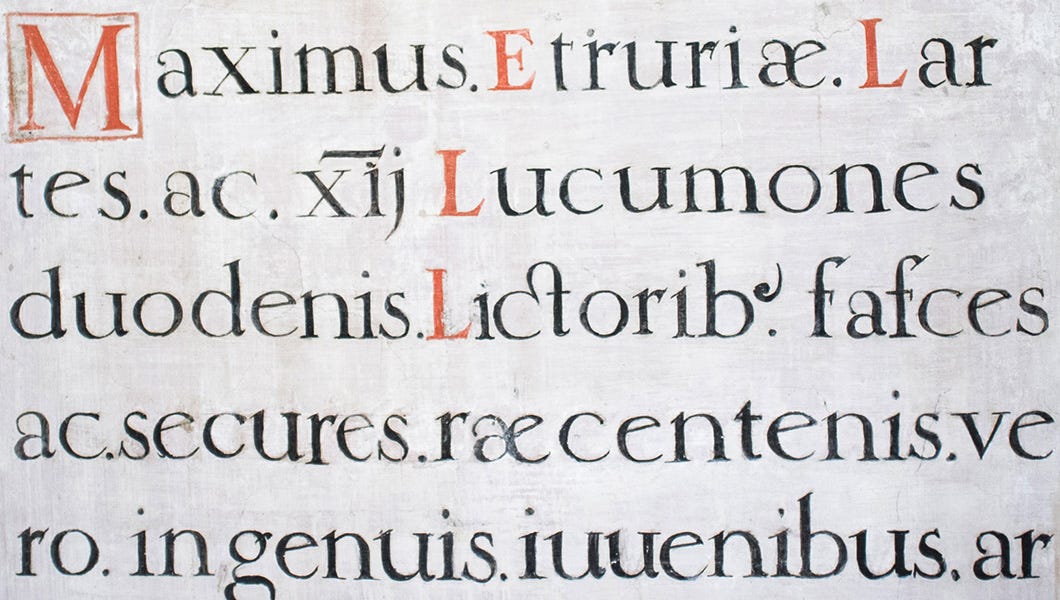 Maximus. Etruriæ. Lar
tes. ac. x̅i̅j Lucumones
duodenis. Lictoribꝰ. faſces
ac. secures. ræcentenis. ve
ro. ingenuis. iuuenibus. ar